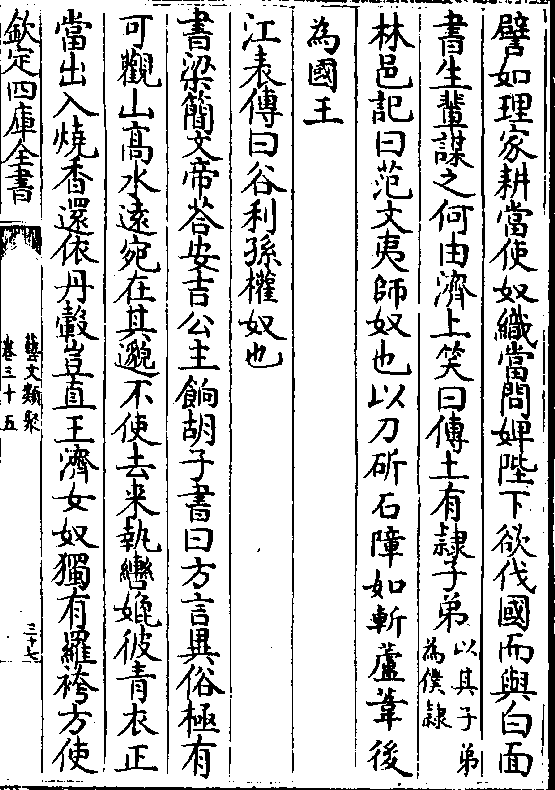 譬如理家耕當使奴織當問婢陛下欲伐國而與白面
書生輩謀之何由濟上笑曰傳土有隷子弟以其子弟為僕隷
林邑記曰范文夷師奴也以刀斫石障如斬蘆葦後
為國王
江表傳曰谷利孫權奴也
書梁簡文帝荅安吉公主餉胡子書曰方言異俗極有
可觀山高水逺宛在其邈不使去来執轡媿彼青衣正
當出入燒香還依丹轂豈直王濟女奴獨有羅袴方使
欽定四庫全書
藝文類聚
卷三十五
三十七